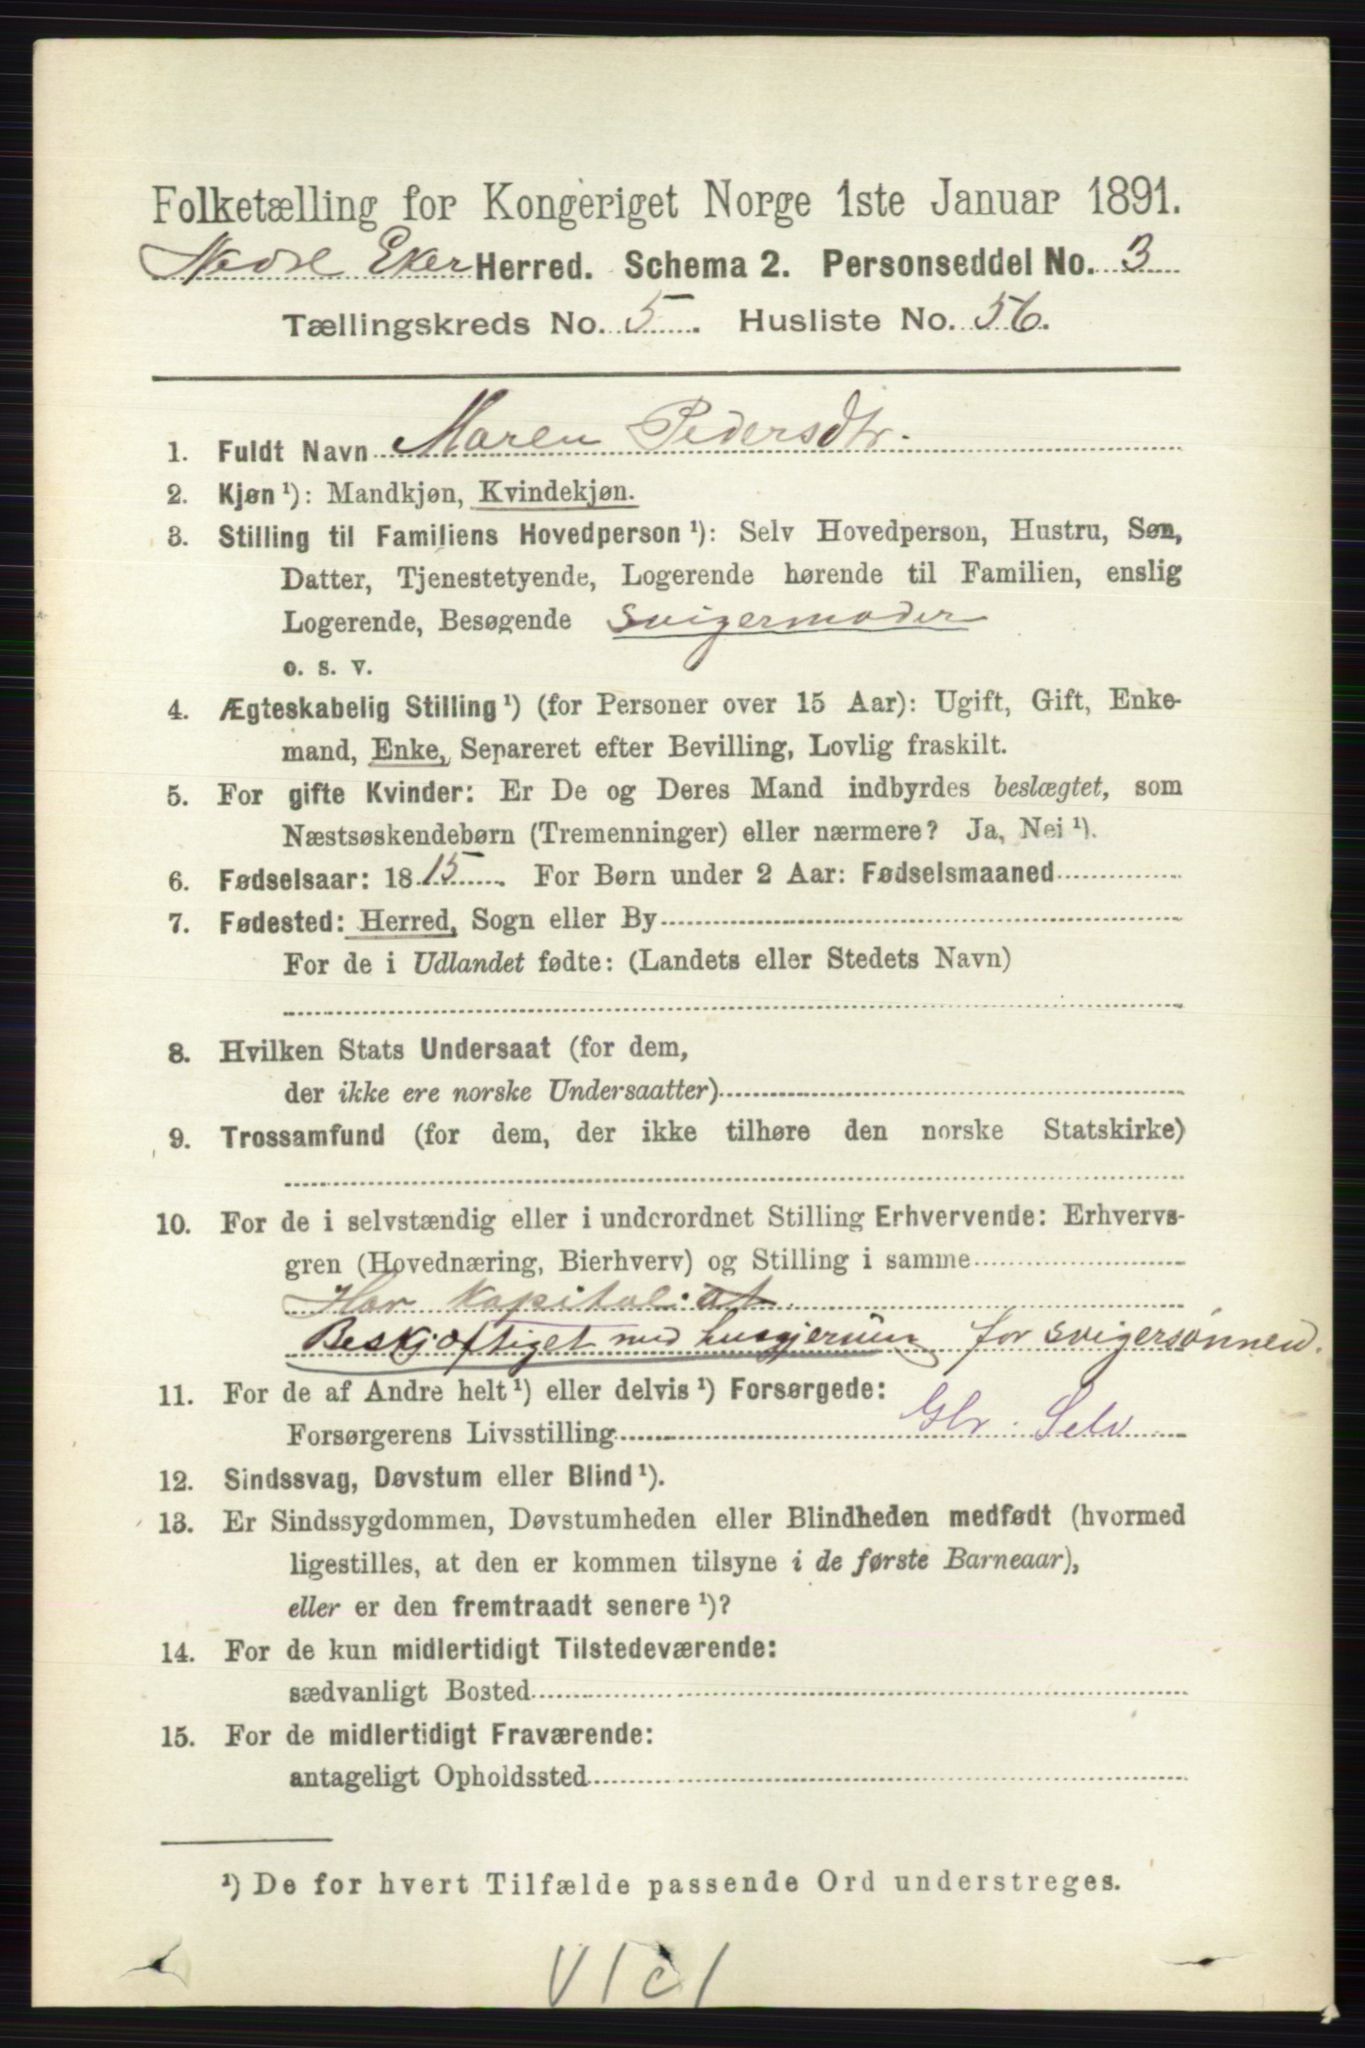 Folketælling for Kongeriget Norge 1ste Januar 1891.
Nedre Eker Herred. Schema 2. Personseddel No. 3
Tællingskreds No. 5. Husliste No. 56.
1. Fuldt Navn Maren Pedersdtr.
2. Kjøn¹): Mandkjøn, Kvindekjøn.
3. Stilling til Familiens Hovedperson¹): Selv Hovedperson, Hustru, Søn,
Datter, Tjenestetyende, Logerende hørende til Familien, enslig
Logerende, Besøgende Svigermoder
o. s. v.
4. Ægteskabelig Stilling¹) (for Personer over 15 Aar): Ugift, Gift, Enke-
mand, Enke, Separeret efter Bevilling, Lovlig fraskilt.
5. For gifte Kvinder: Er De og Deres Mand indbyrdes beslægtet, som
Næstsøskendebørn (Tremenninger) eller nærmere? Ja, Nei¹).
6. Fødselsaar: 1815. For Børn under 2 Aar: Fødselsmaaned
7. Fødested: Herred, Sogn eller By
For de i Udlandet fødte: (Landets eller Stedets Navn)
8. Hvilken Stats Undersaat (for dem,
der ikke ere norske Undersaatter)
9. Trossamfund (for dem, der ikke tilhøre den norske Statskirke)
10. For de i selvstændig eller i underordnet Stilling Erhvervende: Erhvervs-
gren (Hovednæring, Bierhverv) og Stilling i samme
Har Kapital: at
Beskjæftiget med husgjerning for svigersønnen.
11. For de af Andre helt¹) eller delvis¹) Forsørgede:
Forsørgerens Livsstilling Glv. Selv
12. Sindssvag, Døvstum eller Blind¹).
13. Er Sindssygdommen, Døvstumheden eller Blindheden medfødt (hvormed
ligestilles, at den er kommen tilsyne i de første Barneaar),
eller er den fremtraadt senere¹)?
14. For de kun midlertidigt Tilstedeværende:
sædvanligt Bosted
15. For de midlertidigt Fraværende:
antageligt Opholdssted
¹) De for hvert Tilfælde passende Ord understreges.
V1c1